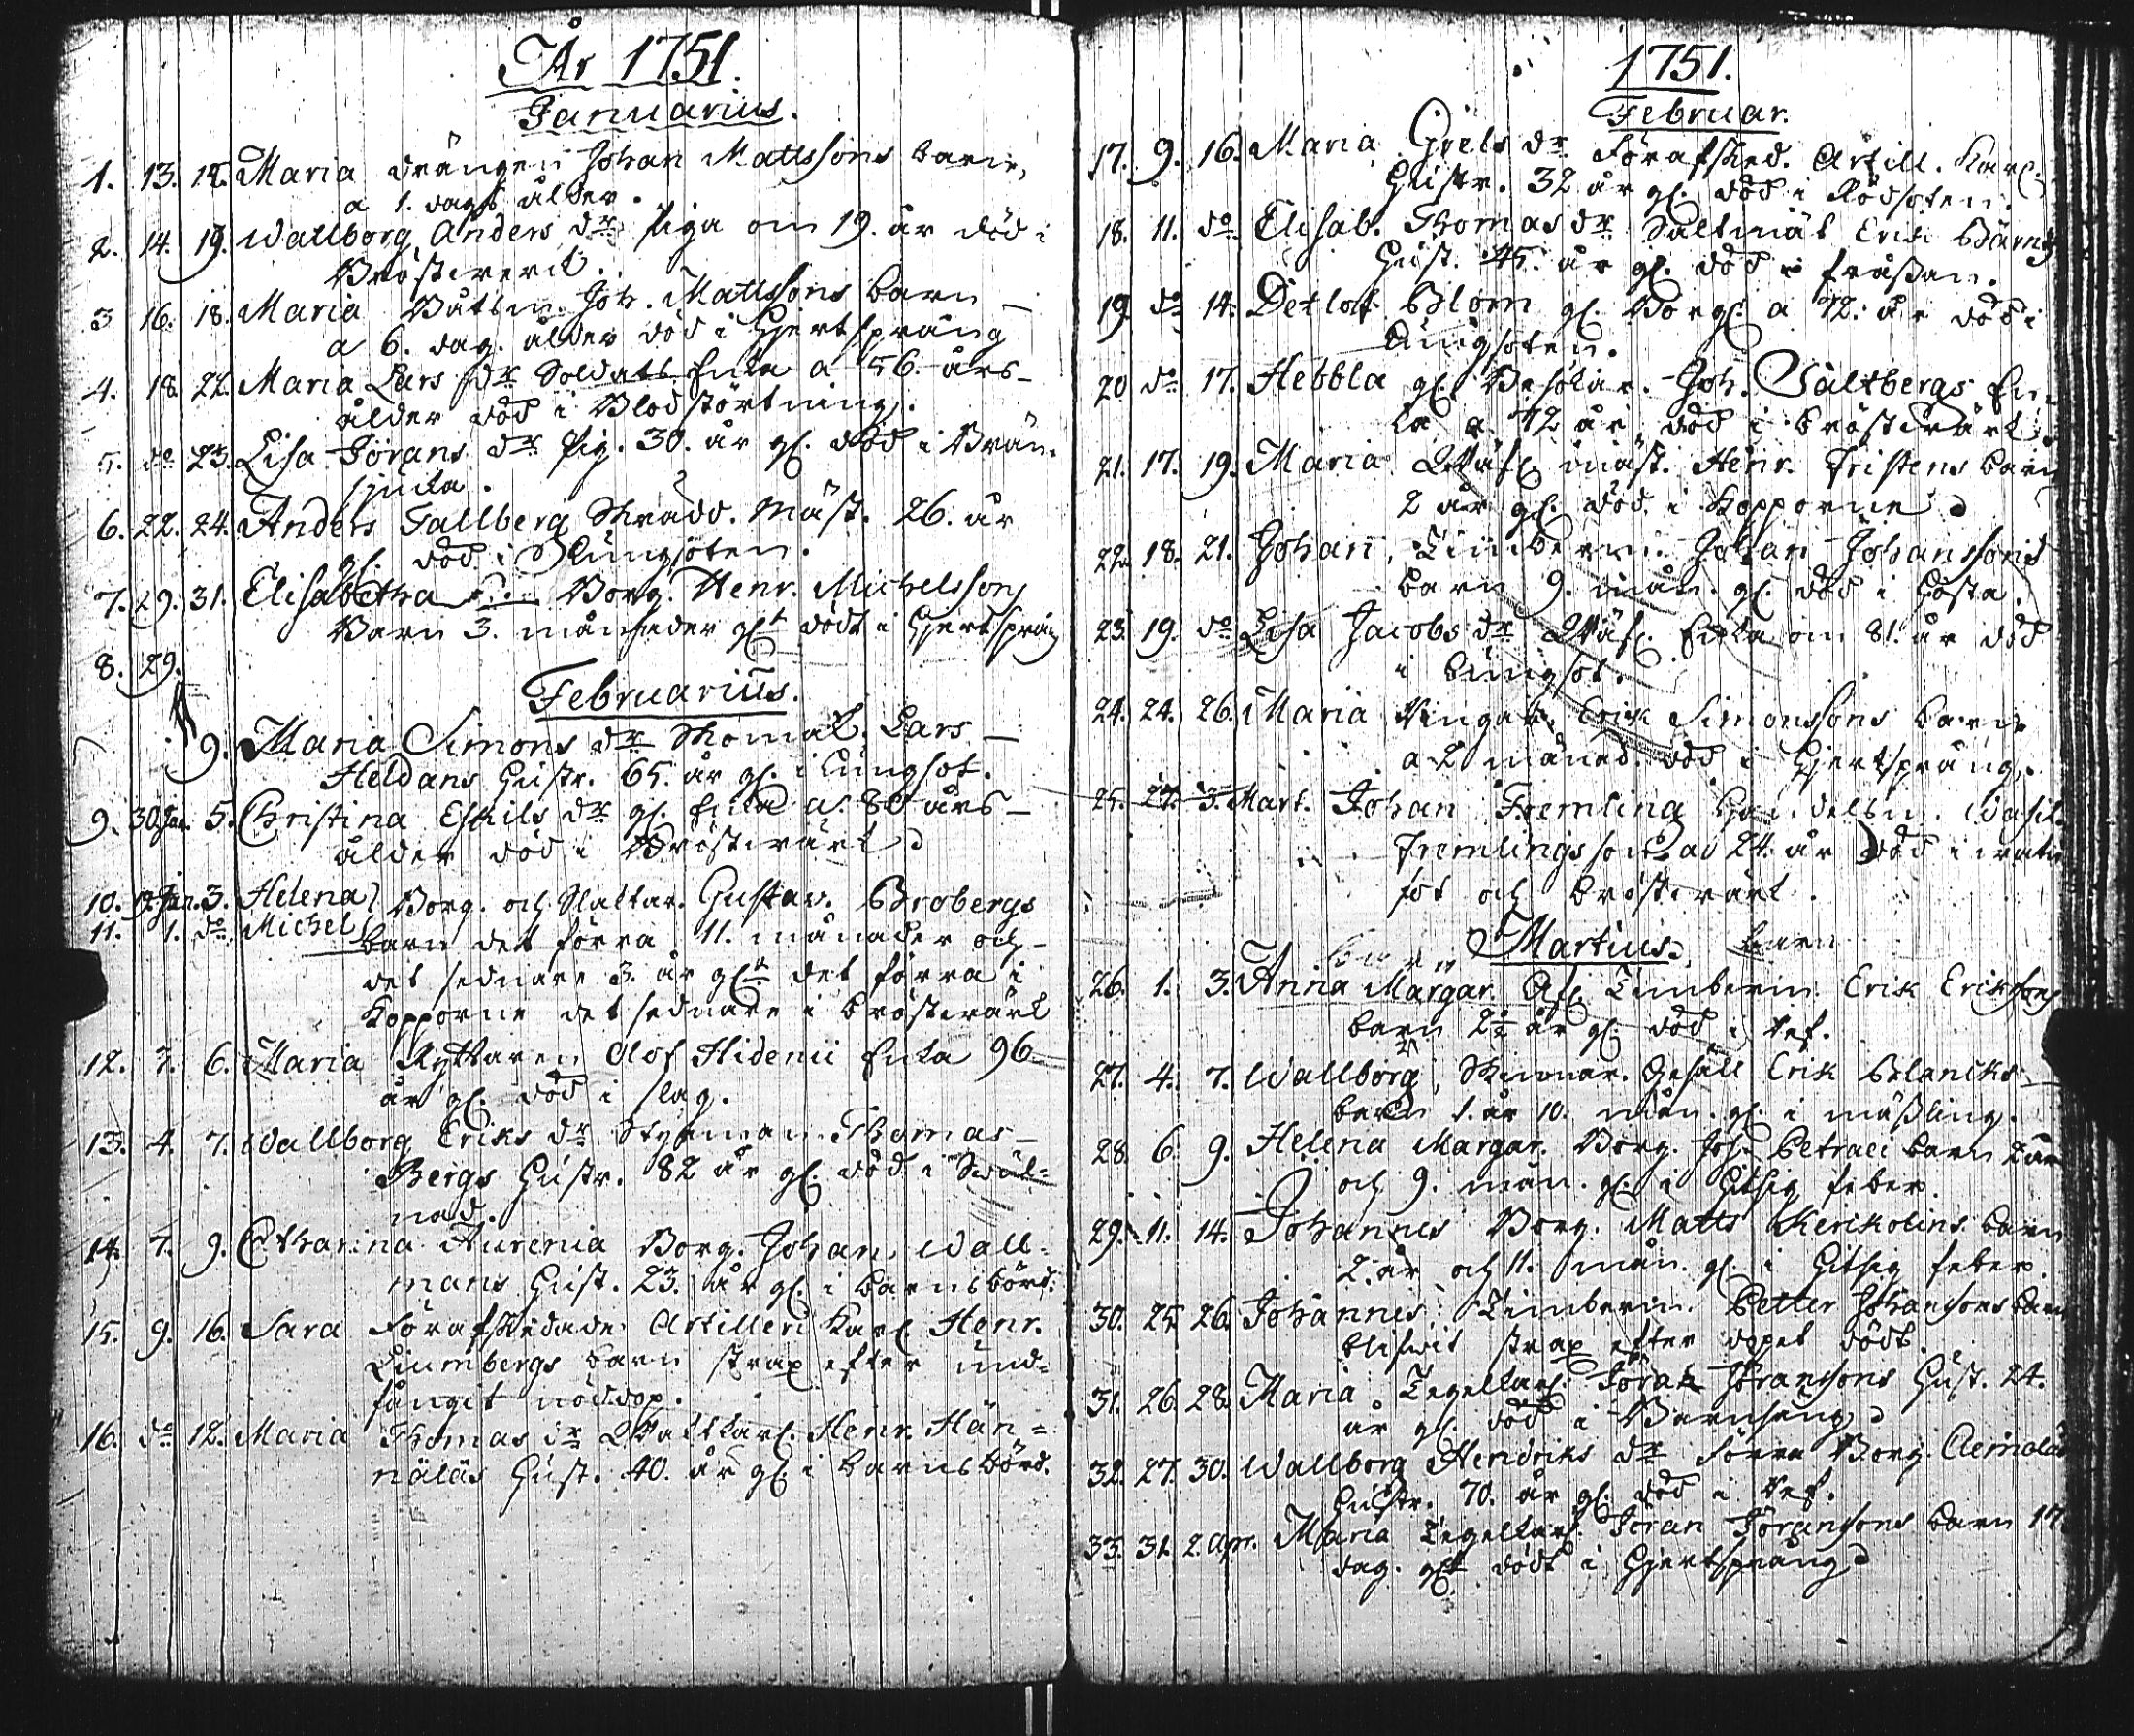 År 1751.
Januarius.
1. 13. 15. Maria drängen Johan Mattssons barn,
a 1. dags ålder.
2. 14. 19. Wallborg Anders dr piga om 19. år död i
Bröstverck.
3 16. 18. Maria Båtsm. Joh. Mattssons barn
a 6. dag. ålder död i Hjertsprång
4. 18. 22. Maria Lars dr Soldats Enka a 56. års
ålder död i Blodstörtning.
5. do 23. Lisa Jörans dr pig. 30. år gl. död i Brän-
sjuka.
6. 22. 24. Anders Fallberg Skrädd. Mäst. 26. år
gl. död i Lungsoten.
7. 29. 31. Elisabetha Borg. Henr. Michelssons
Barn 3. månader glt dödt i Hjertsprång
8. 29.
Februarius.
9. Maria Simons dr Skomak. Lars
Heldans Hustr. 65. år gl. i Lungsot.
9. 30 Jan. 5. Christina Eskils dr gl. Enka a 80 års
ålder död i Bröstvärk
10. Jan. 3. Helena
11. 1. do Michel Borg. och Hattar. Gustav. Brobergs
barn det förra 11. månader och
det sednare 3. år glt det förra i
Kopporne det sednare i bröstvärk
12. 3. 6. Maria Ryttaren Olof Hidenii Enka 96
år gl. död i slag.
13. 4. 7. Wallborg Eriks dr Styrman Thomas
Bergs Hustr. 82 år gl. död i Swull-
nad.
14. 7. 9. Catharina Aurenia Borg. Johan Wall-
mans Hust. 23. år gl. i barnsbörd.
15. 9. 16. Sara Förafskedade Artilleri Karl. Henr.
Liumbergs barn strax efter und-
fångit nöddop.
16. do 12. Maria Thomas dr Wacktkarl. Henr. Hän-
näläs Hust. 40. år gl. i barnsbörd.
1751.
Februar.
17. 9. 16. Maria Grels dr Förafsked. Artill. Karl.
Hustr. 32 år gl. död i Rödsoten.
18. 11. do Elisab. Thomas dr Saltmät. Erik
Hust. 45. år gl. död i frässan.
19 do 14. Detlof Blom gl. Borg. a 72. år död i
Lungsoten.
20 do 17. Hebbla gl. Besökar. Joh. Saltbergs En-
ka a 72 år död i bröstvärk.
21. 17. 19. Maria mäst. Henr. Fristens barn
2 år gl. död i Kopporne
22. 18. 21. Johan, Timberm. Johan Johanssons
barn 9. mån. gl. död i Hosta.
23. 19. do Lisa Jacobs dr Enka om 81. år död
i Lungsot.
24. 24. 26. Maria Erik Simonssons barn
a 2 månad. död i Hjertsprång.
25. 27. 3. Mart. Johan Fremling Handelsm. Wasil.
Fremlings son a 24. år död i watu
sot och bröstvärk.
Martius.
barn
26. 1. 3. Anna Margar. Afl. Timberm. Erik Eriksons
barn 2½ år gl. död i Kef.
27. 4. 7. Wallborg, Skinnar. Gesäll Erik Blancks
barn 1. år 10. mån. gl. i mässling.
28. 6. 9. Helena Margar. Borg. Joh. Petraei barn 2 år
och 9. mån. gl. i Hitsig feber.
29. 11. 14. Johannes Borg. Matts Kerikolins barn
2. år och 11. mån. gl. i Hitsig feber.
30. 25 26. Johannes, Timberm. Petter Johansons barn
blifvit strax efter dopet dödt.
31. 26 28. Maria Tegelkarl. Jöran Jöransons Hust. 24.
år gl. död i Barnsäng
32. 27. 30. Wallborg Hendriks dr förra Borg.
Hustr. 70. år gl. död i Kef.
33. 31. 2. Apr. Maria Tegelkarl. Jöran Jöransons barn 17.
dag. glt dödt i Hjertsprång